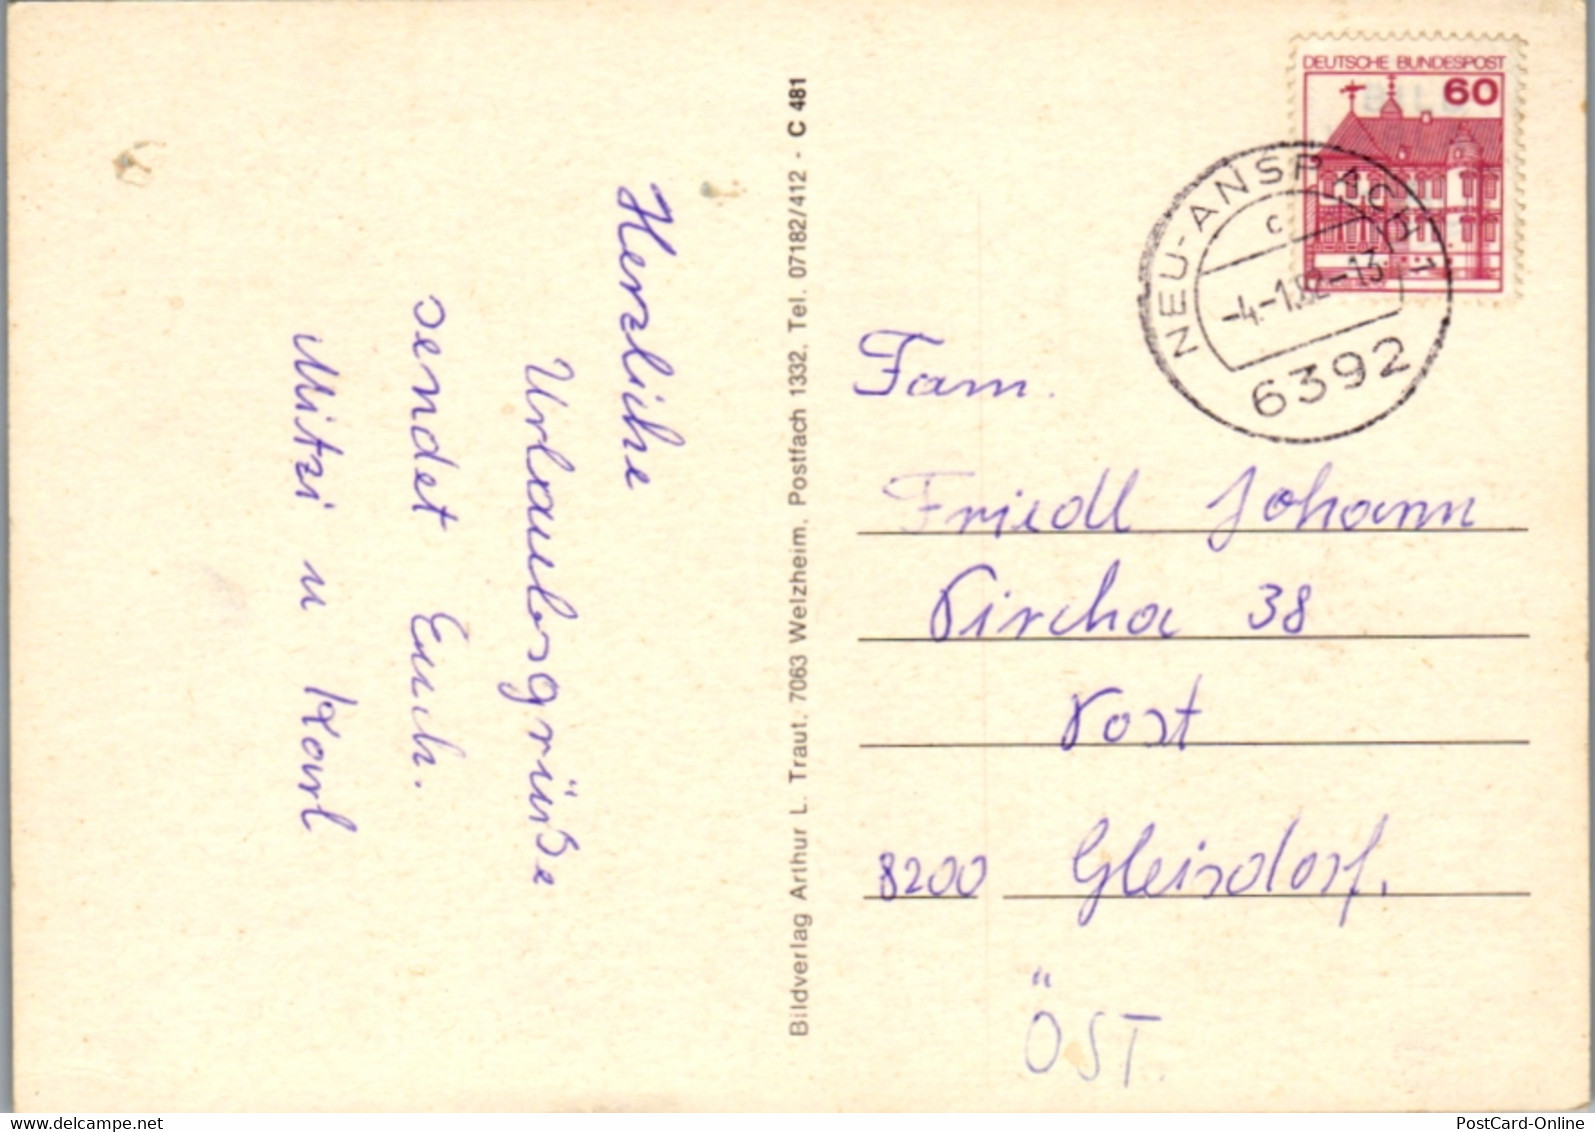 Herzlihe
Urlaubsgrüße
sendet Euch.
Mitzi u Karl
Bildverlag Arthur L. Traut, 7063 Welzheim, Postfach 1332, Tel. 07182/412 - C 481
DEUTSCHE BUNDESPOST
60
NEU-ANSPACH 1
c
-4.-1.82-13
6392
Fam.
Friedl Johann
Pircha 38
Post
8200 Gleisdorf.
ÖST.
PostCard-Online